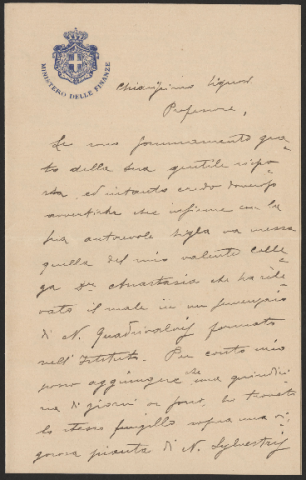 MINISTERO DELLE FINANZE
Chiarissimo Signor
Professore,
Le sono sommamente gra=
to della sua gentile rispo=
sta, ed intanto credo doveroso
avvertirla che insieme con la
sua autorevole sigla va messa
quella del mio valente colle=
ga Dr. Anastasia che ha rile=
vato il male in un
di N. Quadrivalvis formato
nell'Istituto. Per conto mio
posso aggiungere che una quindici=
na di giorni or sono, ho trovato
lo stesso fungillo sopra una ri=
gorosa pianta di N. Sylvestris